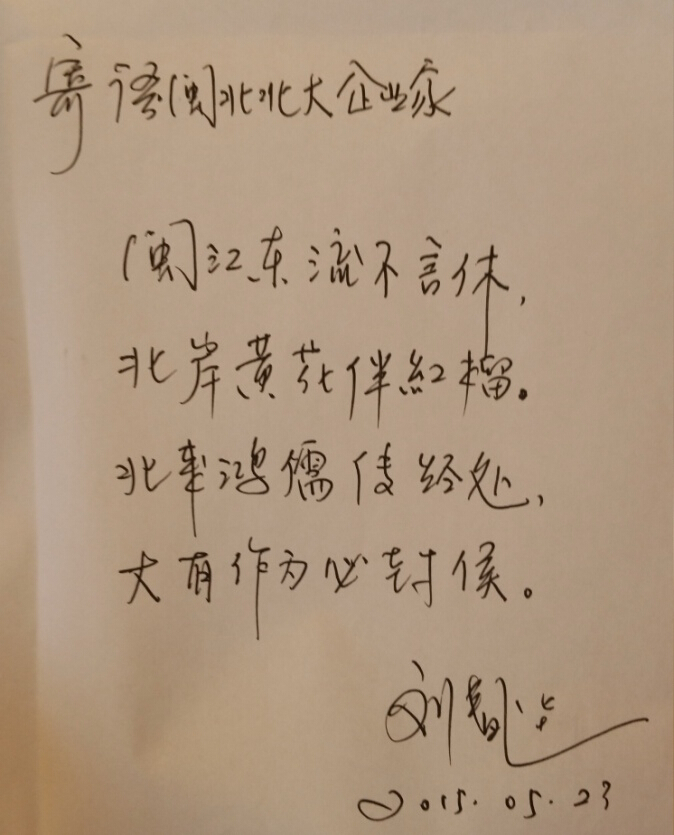 寄语闽北北大企业家
闽江东流不言休,
北岸黄花伴紅榴。
北鸿儒传经处,
大有作为必封侯。
刘
2015.05.23